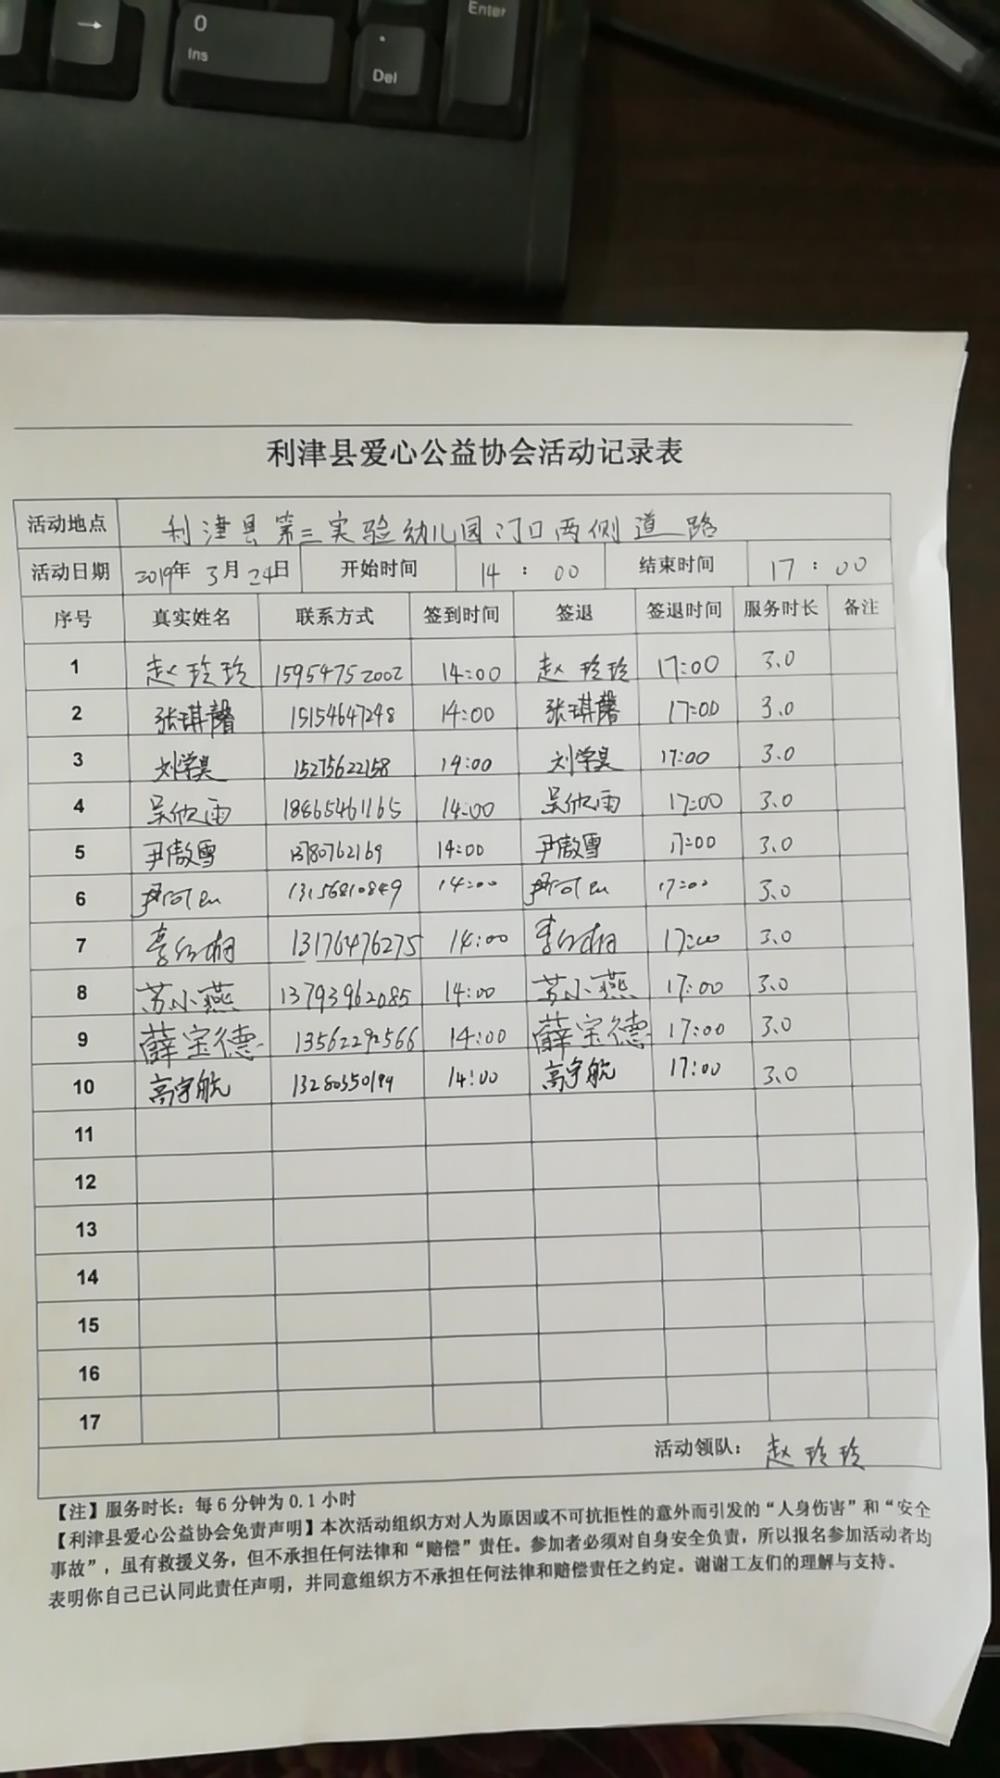 →
0
Ins
.
Del
Enter
利津县爱心公益协会活动记录表
活动地点 利津县第三实验幼儿园门口两侧道路
活动日期 2019年 3月 24日 开始时间 14 : 00 结束时间 17 : 00
序号 真实姓名 联系方式 签到时间 签退 签退时间 服务时长 备注
1 赵玲玲 15954752002 14:00 赵玲玲 17:00 3.0
2 张琪馨 15154647248 14:00 张琪馨 17:00 3.0
3 刘学昊 15275622158 14:00 刘学昊 17:00 3.0
4 吴欣雨 18865461165 14:00 吴欣雨 17:00 3.0
5 尹傲雪 13780762169 14:00 尹傲雪 17:00 3.0
6 13156810849 14:00 17:00 3.0
7 李红梅 13176476275 14:00 李红梅 17:00 3.0
8 苏小燕 13793962085 14:00 苏小燕 17:00 3.0
9 薛宝德 13562292566 14:00 薛宝德 17:00 3.0
10 高宇航 13280350199 14:00 高宇航 17:00 3.0
11
12
13
14
15
16
17
活动领队： 赵玲玲
【注】服务时长：每6分钟为0.1小时
【利津县爱心公益协会免责声明】本次活动组织方对人为原因或不可抗拒性的意外而引发的“人身伤害”和“安全
事故”，虽有救援义务，但不承担任何法律和“赔偿”责任。参加者必须对自身安全负责，所以报名参加活动者均
表明你自己已认同此责任声明，并同意组织方不承担任何法律和赔偿责任之约定。谢谢工友们的理解与支持。